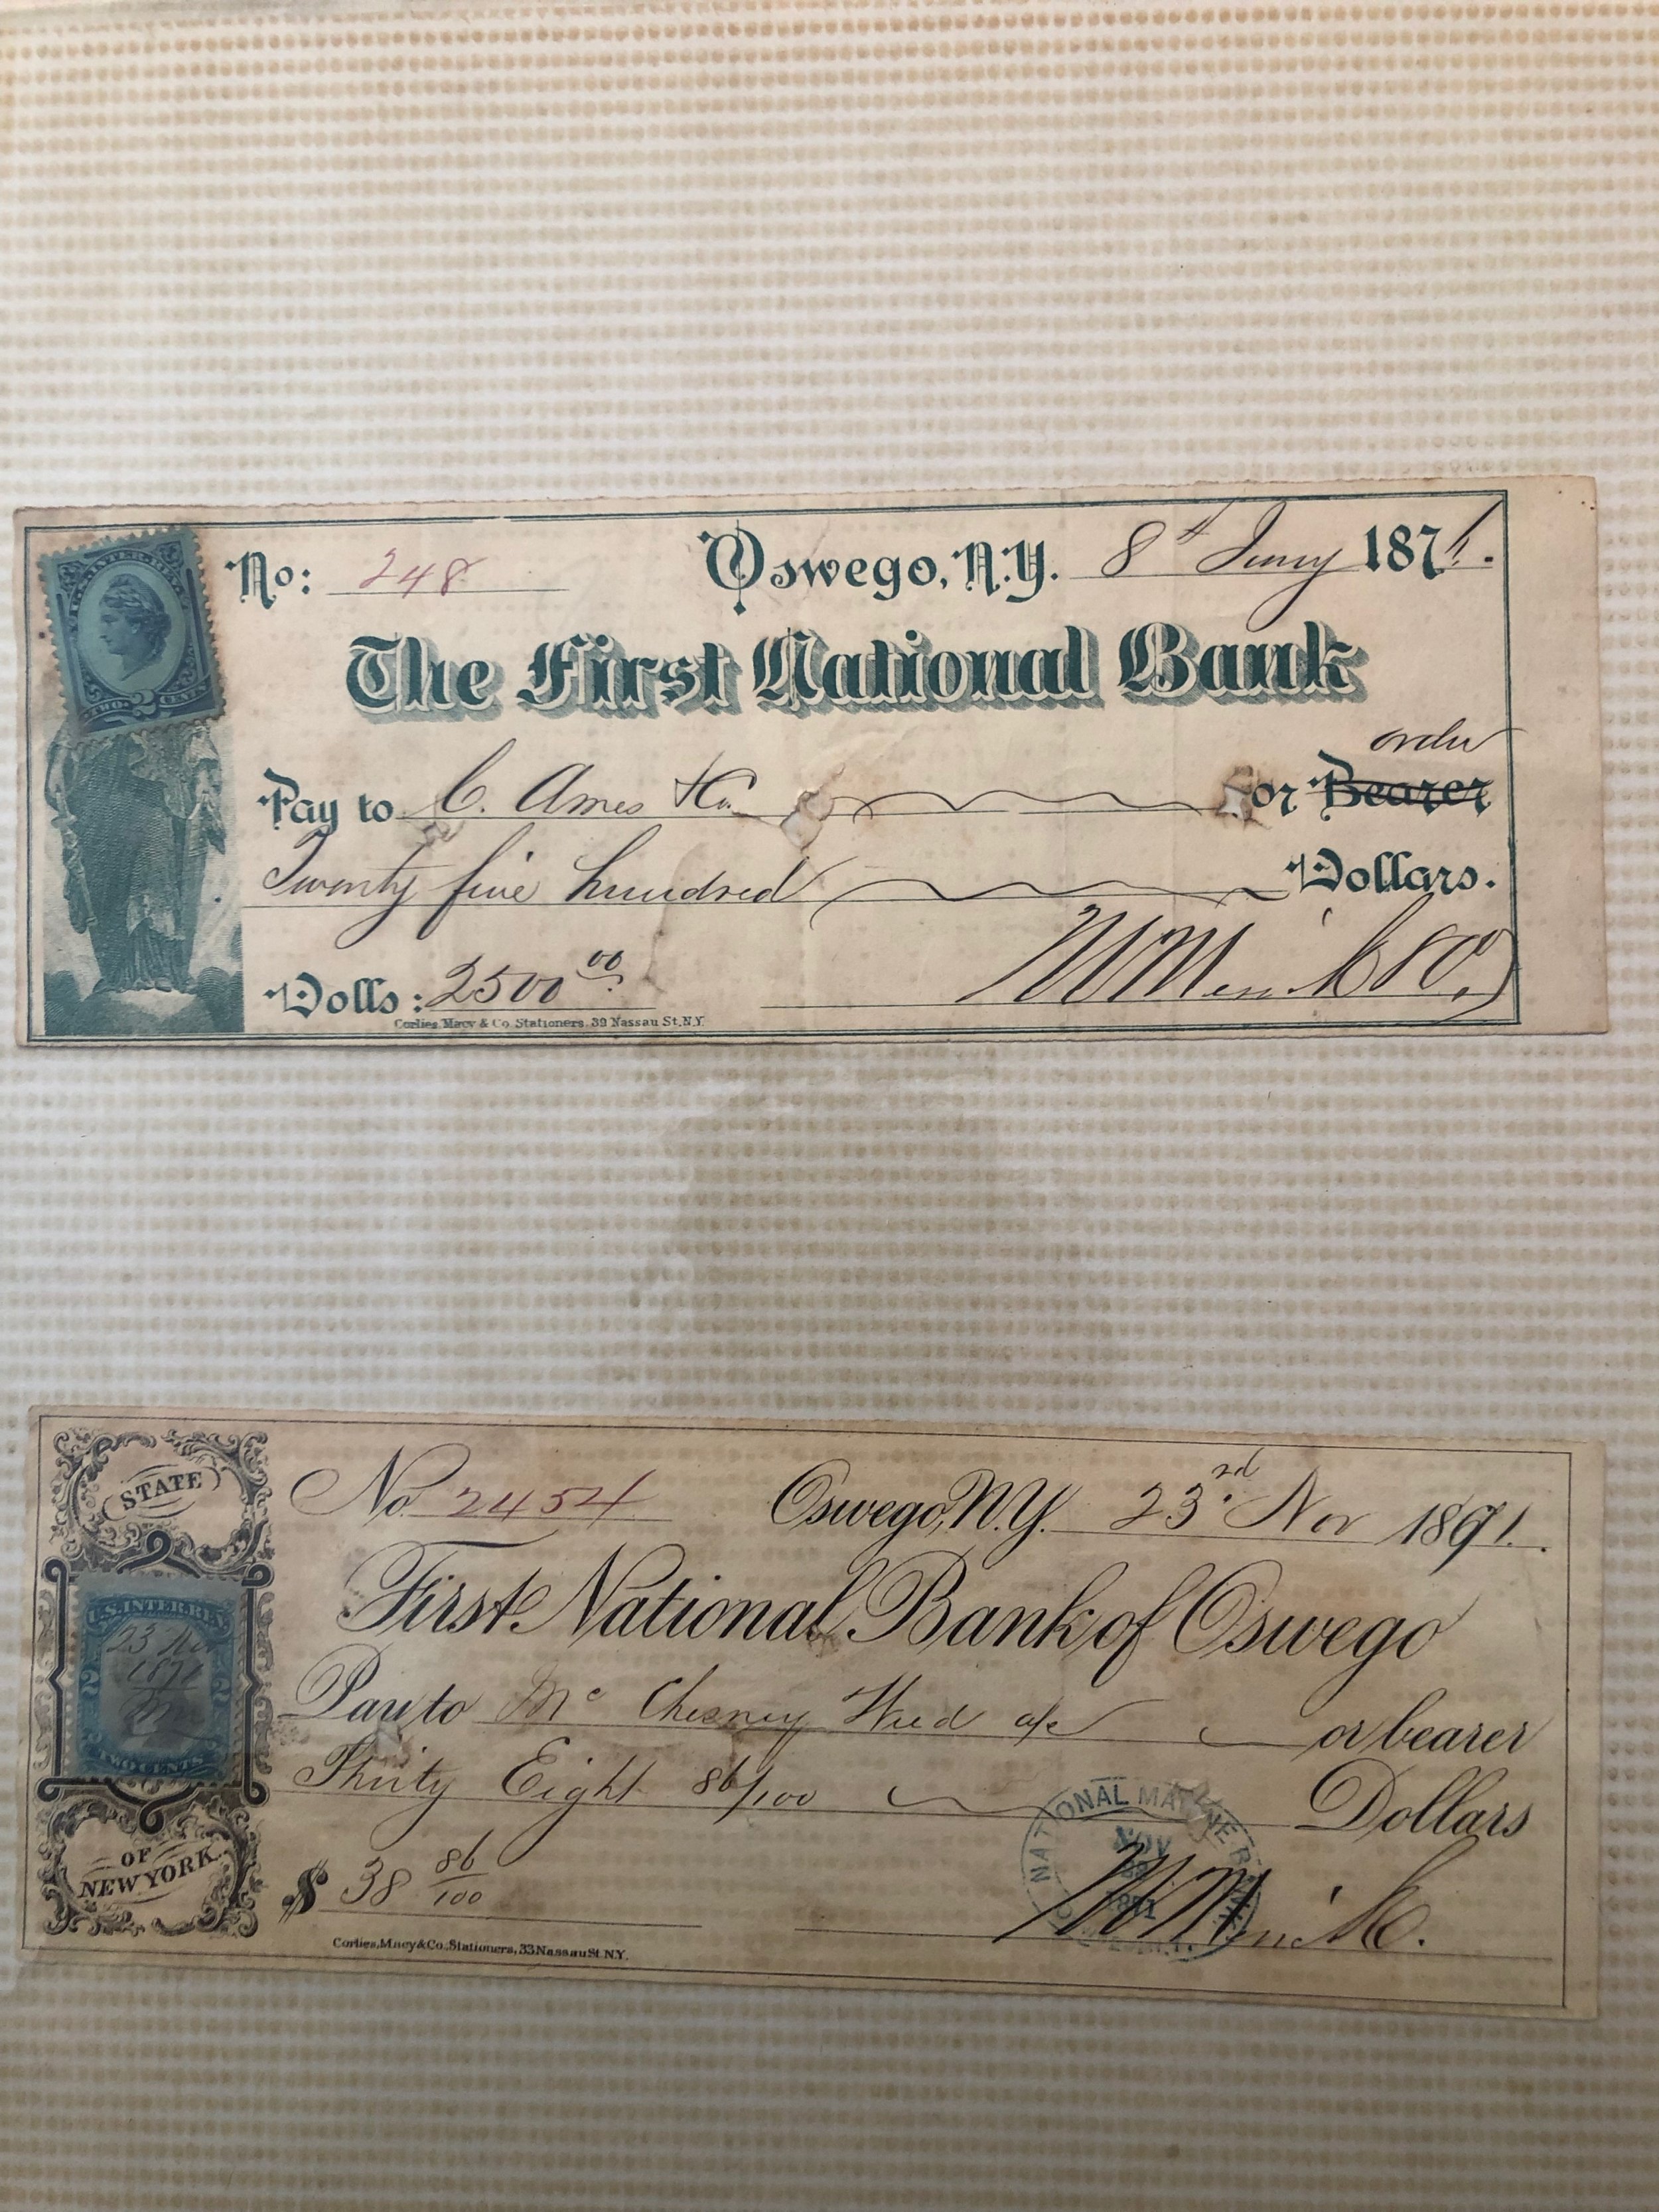 U.S. INTER. REV.
TWO 2 CENTS
No: 248 Oswego, N.Y. 8th Jany 187
The First National Bank
order
Pay to C. Ames & Co. or Bearer
Twenty five hundred Dollars.
Dolls: 2500 00
Corlies, Macy & Co. Stationers. 39 Nassau St. N.Y.
STATE
No. 2454 Oswego, N.Y. 23rd Nov 1871.
First National Bank of Oswego
U.S. INTER. REV.
23 No
1871
2 2
TWO CENTS
Pay to McChesney a/c or bearer
Thirty Eight 86/100 Dollars
NATIONAL MARINE BANK
NOV
OF
NEW YORK.
$ 38 86/100
Corlies, Macy & Co. Stationers, 33 Nassau St. N.Y.